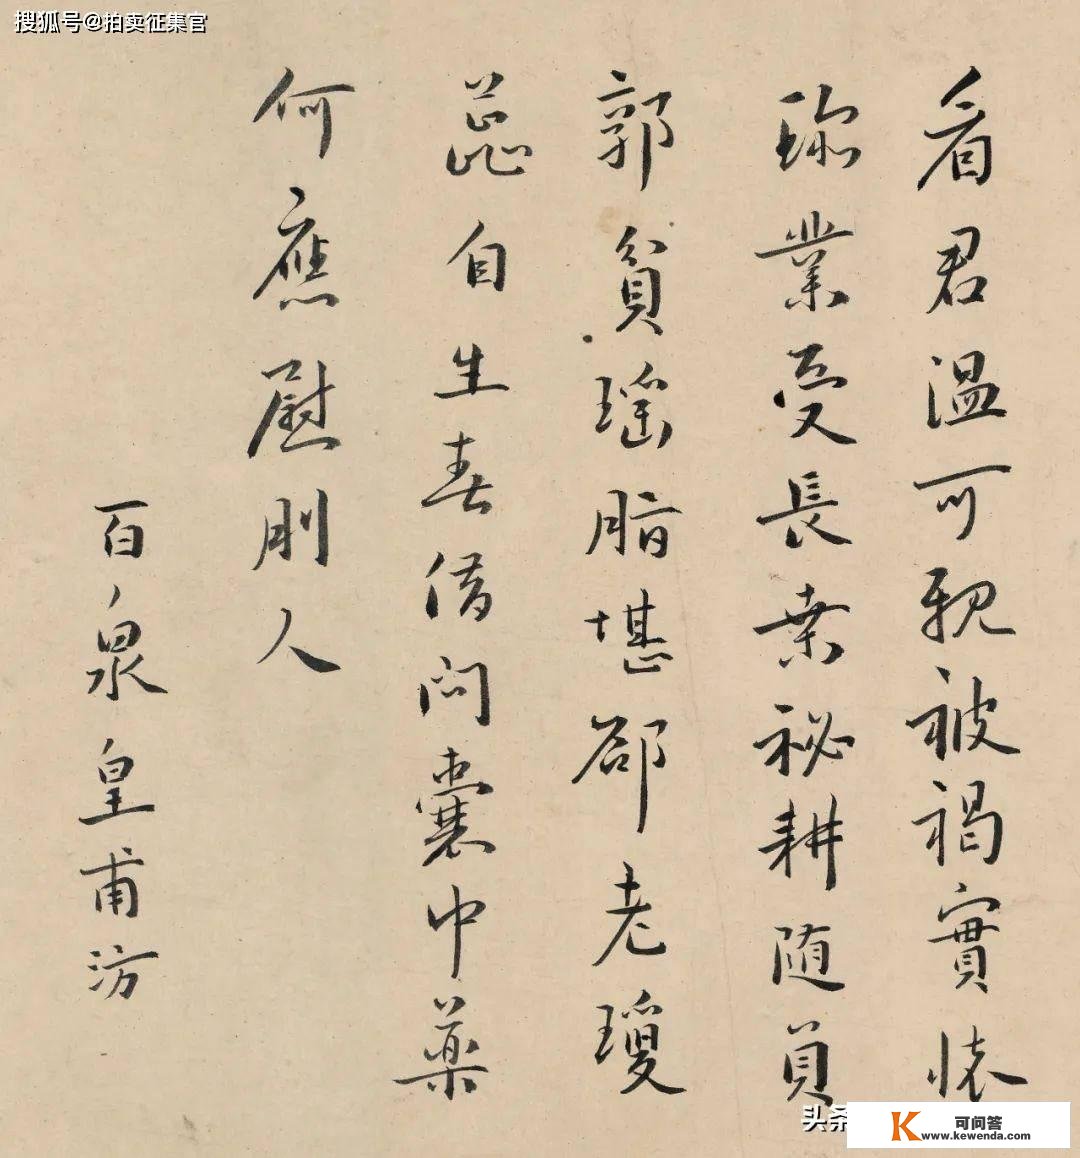 搜狐号@拍卖征集官
看君温可親被褐實懐
珎業受長桒秘耕随負
郭貧瑶脂堪郤老瓊
蕊自生春借問囊中藥
何應慰刖人
百泉皇甫汸
头条
K 可问答
www.kewenda.com